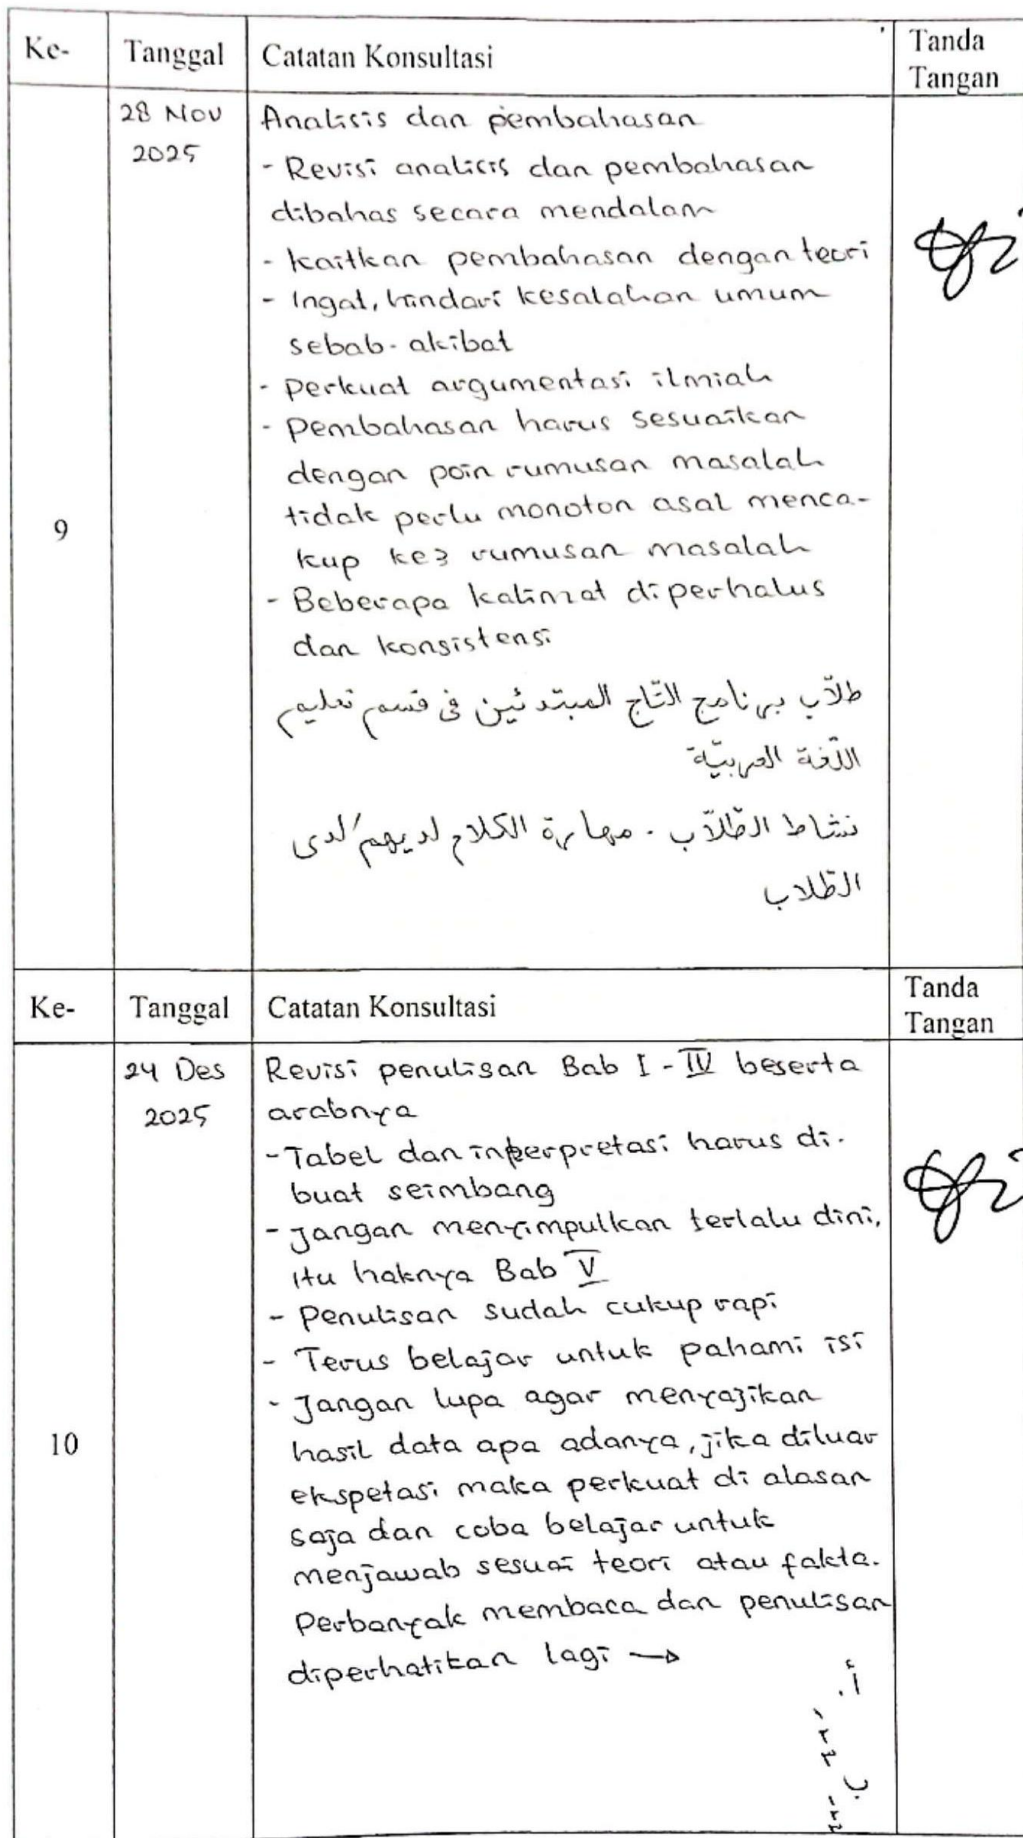 Ke-
Tanggal
Catatan Konsultasi
Tanda
Tangan
9
28 Nov
2025
Analisis dan pembahasan
- Revisi analisis dan pembahasan
dibahas secara mendalam
- kaitkan pembahasan dengan teori
- Ingat, hindari kesalahan umum
sebab-akibat
- perkuat argumentasi ilmiah
- Pembahasan harus sesuaikan
dengan poin rumusan masalah
tidak perlu monoton asal menca-
kup ke3 rumusan masalah
- Beberapa kalimat diperhalus
dan konsistensi
طلّاب برنامج التّاج المبتدئين في قسم تعليم
اللّغة العربيّة
نشاط الطّلّاب . مهارة الكلام لديهم/لدى
الطّلاب
Ke-
Tanggal
Catatan Konsultasi
Tanda
Tangan
10
24 Des
2025
Revisi penulisan Bab I - IV beserta
arabnya
- Tabel dan interpretasi harus di-
buat seimbang
- Jangan menyimpulkan terlalu dini,
itu haknya Bab V
- Penulisan sudah cukup rapi
- Terus belajar untuk pahami isi
- Jangan lupa agar menyajikan
hasil data apa adanya, jika diluar
ekspetasi maka perkuat di alasan
saja dan coba belajar untuk
menjawab sesuai teori atau fakta.
Perbanyak membaca dan penulisan
diperhatikan lagi →
أ.